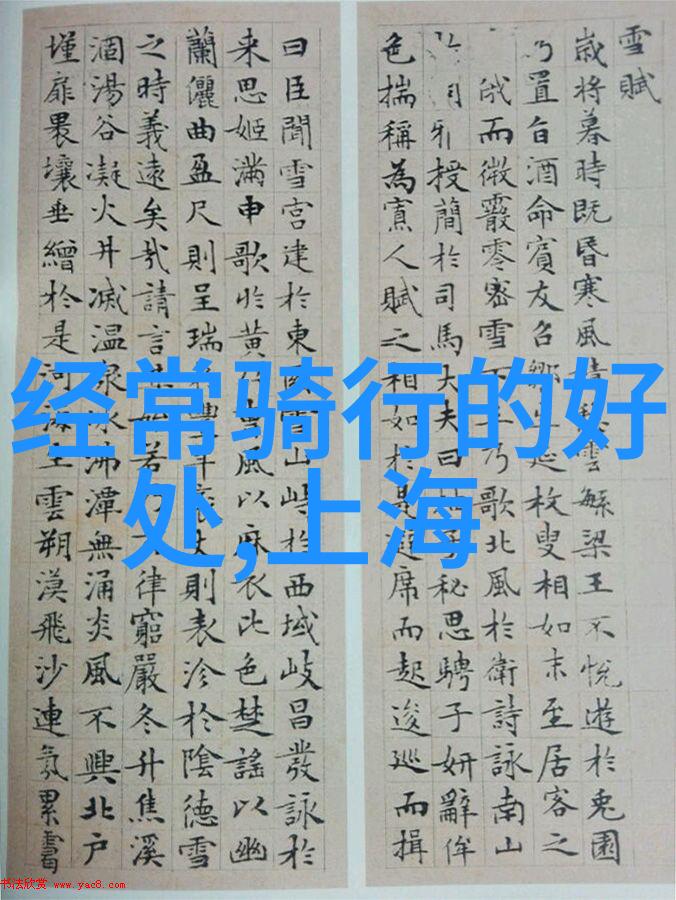 雪賦
歲將暮時既昏寒風雲繇梁王不悅遊於兎園
乃置旨酒命賓友召鄒生延枚叟相如末至居客之
俄而微霰零密雪王乃歌北風於衛詩詠南山
雅授簡於司馬大夫曰子秘思騁子妍辭侔
色揣稱為寡人賦之相如於是避席而起逡巡而揖
曰臣聞雪宮建於東國雪山峙於西域岐昌發詠於
来思姬滿申歌於黄風以麻衣比色楚謠以幽
蘭儷曲盈尺則呈瑞豐年袤丈則表沴於陰德雪
之時義遠矣哉請言若律窮嚴冬升焦溪
涸湯谷凝火井滅温泉冰沸潭無涌炎風不興北户
墐扉裸壤垂繒於是河海生雲朔漠飛沙連氛累靄
经常骑行的好
处,上海
书法欣赏 www.yac8.com